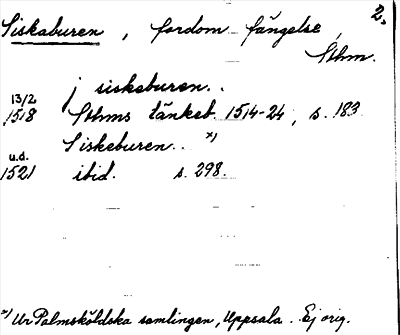 2.
Siskaburen, fordom fängelse,
Sthm.
j siskeburen..
13/2
1518 Sthms tänkeb. 1514-24, s. 183
Siskeburen.. *)
u.d.
1521 ibid. s. 298.
*) Ur Palmsköldska samlingen, Uppsala. Ej orig.